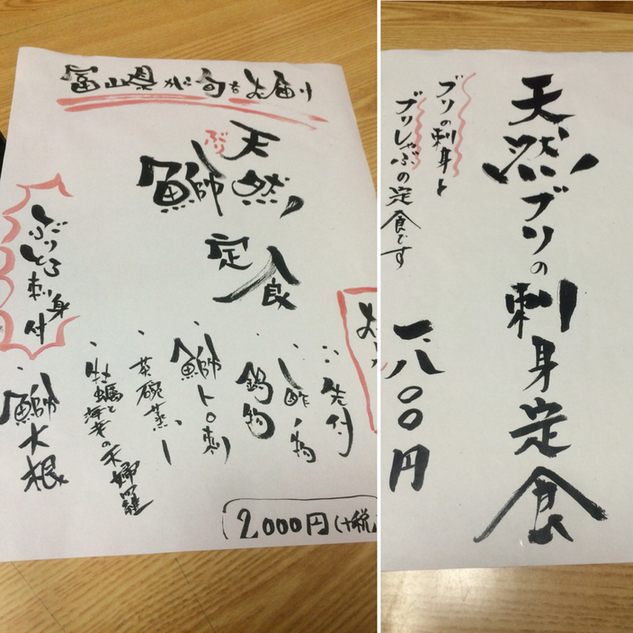 富山県から旬をお届け
天然
鰤
ぶり
定食
ぶりとろ刺身付
・先付
・酢の物
鍋物
鰤トロ刺
・茶碗蒸し
・牡蠣と海老の天婦羅
・鰤大根
2000円(+税
天然ブリの刺身定食
ブリの刺身と
ブリしゃぶの定食です
一、八〇〇円